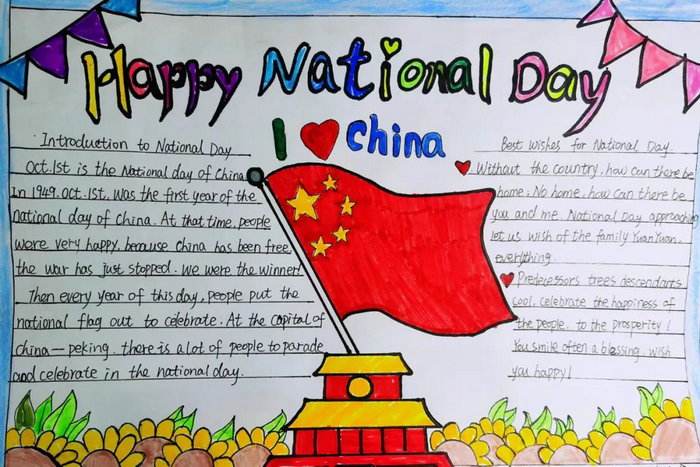 Happy National Day
I China
Introduction to National Day
Oct.1st is the National day of China
In 1949. Oct.1st. was the first year of the
national day of China. At that time, people
were very happy, because China has been free,
the war has just stopped. we were the winner!
Then every year of this day, people put the
national flag out to celebrate. At the capital of
china—peking. there is a lot of people to parade
and celebrate in the national day.
Best wishes for National Day
Without the country, how can there be
home. No home. how can there be
you and me. National Day approaching
let us wish of the family YuanYuan.
everything
Predecessors trees descendants
cool. celebrate the happiness of
the people. to the prosperity!
You smile often a blessing. wish
you happy!